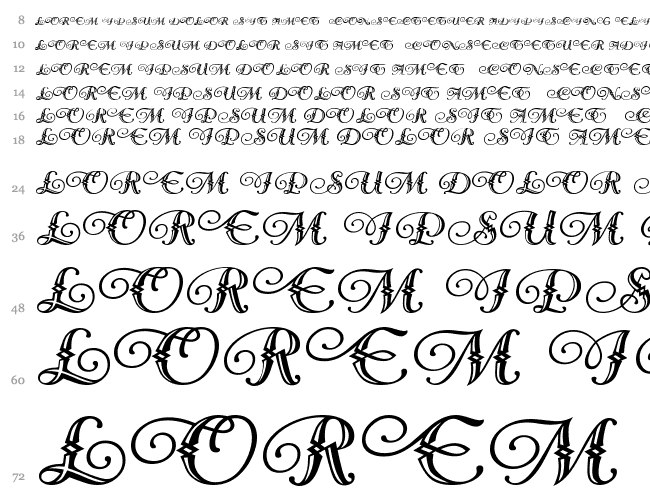 8 LOREM IPSUM DOLOR SIT AMET CONSECTETUER ADIPISCING
10 LOREM IPSUM DOLOR SIT AMET CONSECTETUER
12 LOREM IPSUM DOLOR SIT AMET CONSECTET
14 LOREM IPSUM DOLOR SIT AMET CONS
16 LOREM IPSUM DOLOR SIT AMET
18 LOREM IPSUM DOLOR SIT AME
24 LOREM IPSUM DOLOR
36 LOREM IPSUM
48 LOREM IPS
60 LOREM I
72 LOREM